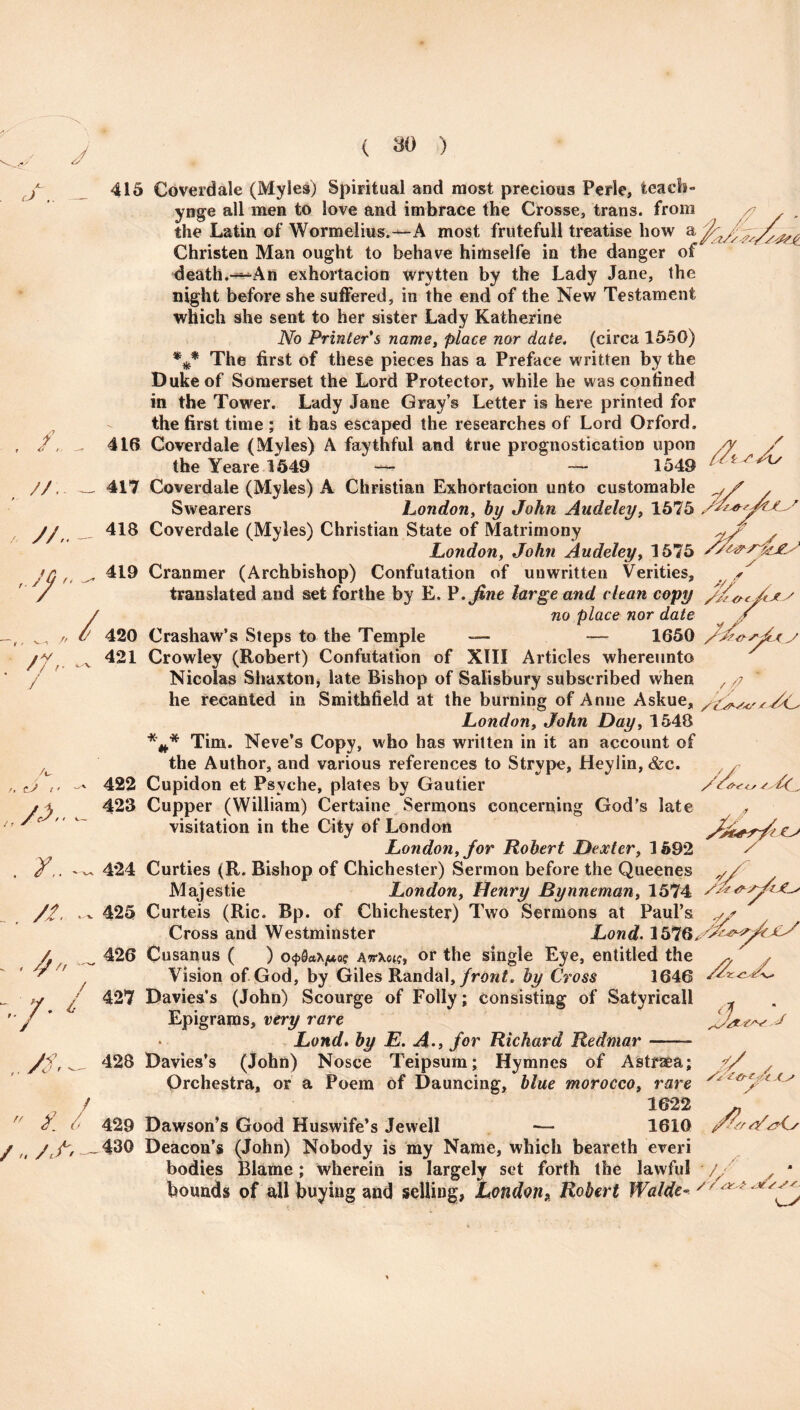 ( 30 )
415 Coverdale (Myles) Spiritual and most precious Perle, teach-
ynge all men to love and imbrace the Crosse, trans. from
the Latin of Wormelius.—A most frutefull treatise how a
Christen Man ought to behave himselfe in the danger of
death.—An exhortacion wrytten by the Lady Jane, the
night before she suffered, in the end of the New Testament
which she sent to her sister Lady Katherine
No Printer's name, place nor date. (circa 1550)
*** The first of these pieces has a Preface written by the
Duke of Somerset the Lord Protector, while he was confined
in the Tower. Lady Jane Gray's Letter is here printed for
the first time ; it has escaped the researches of Lord Orford.
416 Coverdale (Myles) A faythful and true prognostication upon
the Yeare 1549 — — 1549
417 Coverdale (Myles) A Christian Exhortacion unto customable
Swearers London, by John Audeley, 1575
418 Coverdale (Myles) Christian State of Matrimony
London, John Audeley, 1575
419 Cranmer (Archbishop) Confutation of unwritten Verities,
translated and set forthe by E. P. fine large and clean copy
no place nor date
420 Crashaw's Steps to the Temple — — 1650
421 Crowley (Robert) Confutation of XIII Articles whereunto
Nicolas Shaxton, late Bishop of Salisbury subscribed when
he recanted in Smithfield at the burning of Anne Askue,
London, John Day, 1548
*** Tim. Neve's Copy, who has written in it an account of
the Author, and various references to Strype, Heylin, &c.
422 Cupidon et Psyche, plates by Gautier
423 Cupper (William) Certaine Sermons concerning God's late
visitation in the City of London
London, for Robert Dexter, 1592
424 Curties (R. Bishop of Chichester) Sermon before the Queenes
Majestie London, Henry Bynneman, 1574
425 Curteis (Ric. Bp. of Chichester) Two Sermons at Paul's
Cross and Westminster Lond. 1576
426 Cusanus ( ) οφθαλμος Απλοις, or the single Eye, entitled the
Vision of God, by Giles Randal, front. by Cross 1646
427 Davies's (John) Scourge of Folly; consisting of Satyricall
Epigrams, very rare
Lond. by E. A., for Richard Redmar ——
428 Davies's (John) Nosce Teipsum; Hymnes of Astræa;
Orchestra, or a Poem of Dauncing, blue morocco, rare
1622
429 Dawson's Good Huswife's Jewell — 1610
430 Deacon's (John) Nobody is my Name, which beareth everi
bodies Blame ; wherein is largely set forth the lawful
bounds of all buying and selling, London, Robert Walde-